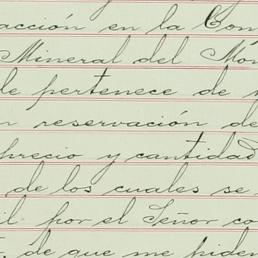 acción en la Com
Mineral del Mon
le pertenece de
n reservación de
precio y cantidad
de los cuales se
il por el Señor co
de que me piden